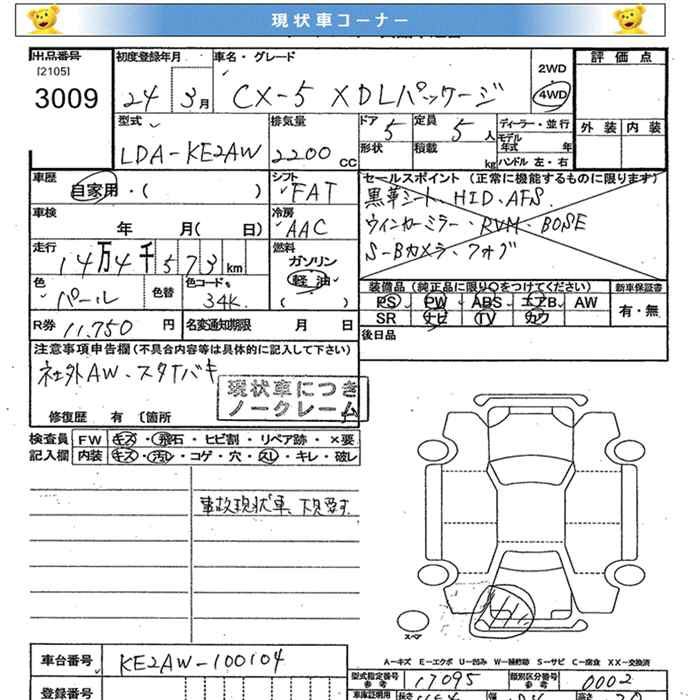 現状車コーナー
出品番号 初度登録年月 車名・グレード 評価点
[2105]
3009 24 3月 CX-5 XDLパッケージ 2WD 4WD
型式 排気量 ドア 5 定員 5人 ディーラー・並行 外装 内装
LDA-KE2AW 2200CC 形状 積載 kg モデル年式 年
ハンドル 左・右
車歴 シフト セールスポイント(正常に機能するものに限ります)
自家用・( ) FAT 黒革シート、HID、AFS
車検 冷房 ウインカーミラー・RVM・BOSE
年 月( 日) AAC S-Bカメラ・フォグ
走行 燃料
14万4千573km ガソリン
(軽油)
色 パール 色替 色コード 34K 装備品(純正品に限り○をつけてください) 新車保証書
PS PW ABS エアB AW 有・無
SR ナビ TV カワ
R券 11,750円 名変通知期限 月 日 後日品
注意事項申告欄(不具合内容等は具体的に記入して下さい)
社外AW、スタイバキ
現状車につき
ノークレーム
修復歴 有 〔箇所
検査員 FW キズ・飛石・ヒビ割・リペア跡・×要
記入欄 内装 キズ・汚レ・コゲ・穴・スレ・キレ・破レ
事故現状車、下見要す
スペア
A-キズ E-エクボ U-凹み W-補修跡 S-サビ C-腐食 XX-交換済
車台番号 KE2AW-100104
型式指定番号 参考 17095 類別区分番号 参考 0002
登録番号
車庫証明用 長さ 幅 高さ